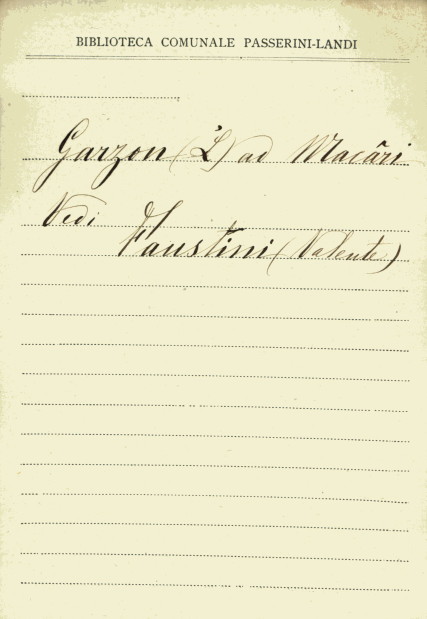 BIBLIOTECA COMUNALE PASSERINI-LANDI
Garzon (L') ad Macâri
Vedi
Faustini (Valente)